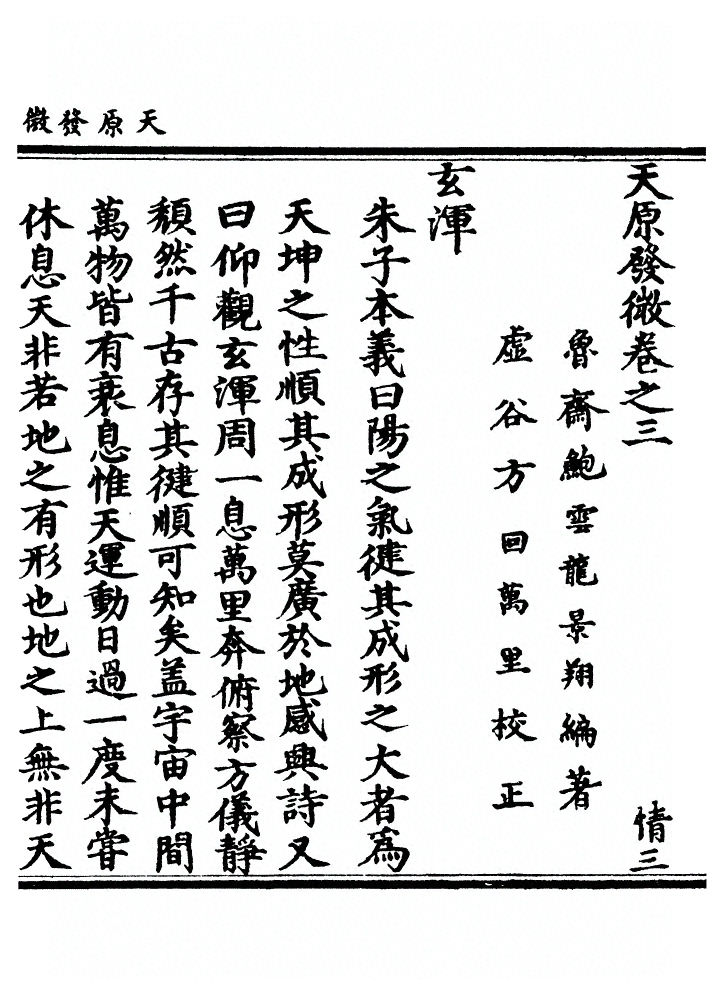 天原發微
天原發微卷之三 情三
魯齋鮑雲龍景翔編著
虛谷方回萬里校正
玄渾
朱子本義曰陽之氣健其成形之大者為
天坤之性順其成形莫廣於地感興詩又
曰仰觀玄渾周一息萬里奔俯察方儀靜
頹然千古存其健順可知矣盖宇宙中間
萬物皆有衰息惟天運動日過一度未嘗
休息天非若地之有形也地之上無非天